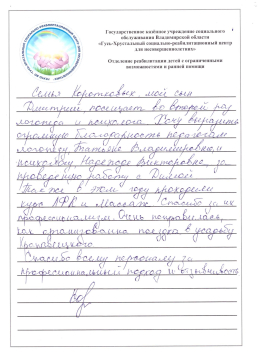 Государственное казённое учреждение социального
обслуживания Владимирской области
«Гусь-Хрустальный социально-реабилитационный центр
для несовершеннолетних»
Отделение реабилитации детей с ограниченными
возможностями и ранней помощи
Семья Коротковых. мой сын
Дмитрий посещает во второй раз
логопеда и психолога. Хочу выразить
огромную благодарность педагогам
логопеду Татьяне Владимировне и
психологу Надежде Викторовне, за
проведенную работу с Димой
Так же в этом году проходили
курс ЛФК и Массаж. Спасибо за их
профессионализм. Очень понравилась,
как организована поездка в усадьбу
Храповицкого.
Спасибо всему персоналу за
профессиональный подход и отзывчивость